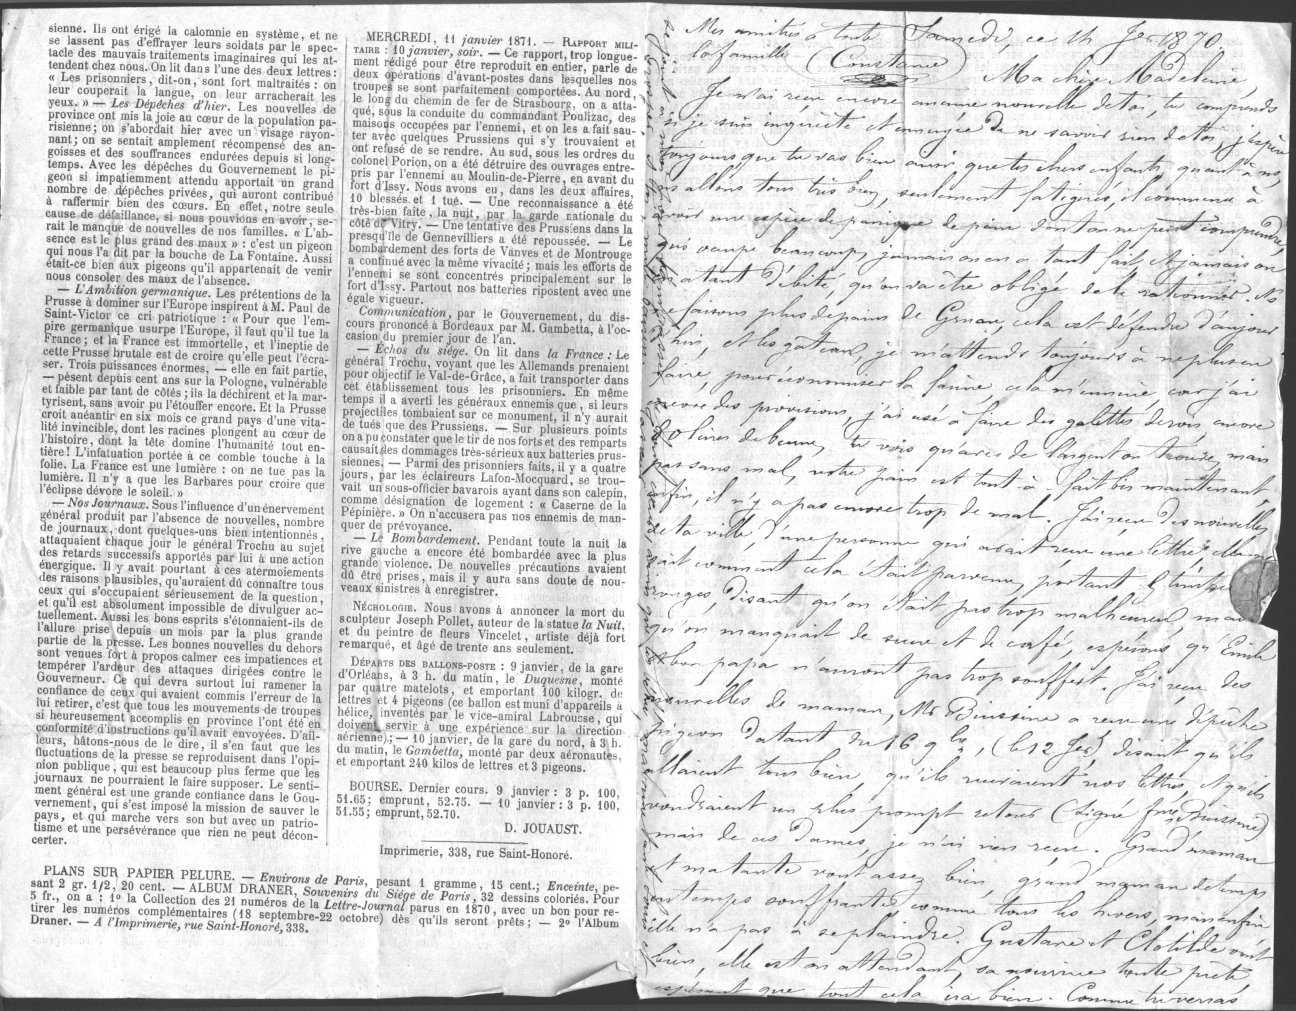 sienne. Ils ont érigé la calomnie en système, et ne
se lassent pas d'effrayer leurs soldats par le spec-
tacle des mauvais traitements imaginaires qui les at-
tendent chez nous. On lit dans l'une des deux lettres:
« Les prisonniers, dit-on, sont fort maltraités : on
leur couperait la langue, on leur arracherait les
yeux. » — Les Dépêches d'hier. Les nouvelles de
province ont mis la joie au cœur de la population pa-
risienne; on s'abordait hier avec un visage rayon-
nant; on se sentait amplement récompensé des an-
goisses et des souffrances endurées depuis si long-
temps. Avec les dépêches du Gouvernement le pi-
geon si impatiemment attendu apportait un grand
nombre de dépêches privées, qui auront contribué
à raffermir bien des cœurs. En effet, notre seule
cause de défaillance, si nous pouvions en avoir, se-
rait le manque de nouvelles de nos familles. « L'ab-
sence est le plus grand des maux » : c'est un pigeon
qui nous l'a dit par la bouche de La Fontaine. Aussi
était-ce bien aux pigeons qu'il appartenait de venir
nous consoler des maux de l'absence.
— L'Ambition germanique. Les prétentions de la
Prusse à dominer sur l'Europe inspirent à M. Paul de
Saint-Victor ce cri patriotique : « Pour que l'em-
pire germanique usurpe l'Europe, il faut qu'il tue la
France; et la France est immortelle, et l'ineptie de
cette Prusse brutale est de croire qu'elle peut l'écra-
ser. Trois puissances énormes, — elle en fait partie,
— pèsent depuis cent ans sur la Pologne, vulnérable
et faible par tant de côtés; ils la déchirent et la mar-
tyrisent, sans avoir pu l'étouffer encore. Et la Prusse
croit anéantir en six mois ce grand pays d'une vita-
lité invincible, dont les racines plongent au cœur de
l'histoire, dont la tête domine l'humanité tout en-
tière! L'infatuation portée à ce comble touche à la
folie. La France est une lumière : on ne tue pas la
lumière. Il n'y a que les Barbares pour croire que
l'éclipse dévore le soleil. »
— Nos Journaux. Sous l'influence d'un énervement
général produit par l'absence de nouvelles, nombre
de journaux, dont quelques-uns bien intentionnés,
attaquaient chaque jour le général Trochu au sujet
des retards successifs apportés par lui à une action
énergique. Il y avait pourtant à ces atermoiements
des raisons plausibles, qu'auraient dû connaître tous
ceux qui s'occupaient sérieusement de la question,
et qu'il est absolument impossible de divulguer ac-
tuellement. Aussi les bons esprits s'étonnaient-ils de
l'allure prise depuis un mois par la plus grande
partie de la presse. Les bonnes nouvelles du dehors
sont venues fort à propos calmer ces impatiences et
tempérer l'ardeur des attaques dirigées contre le
Gouverneur. Ce qui devra surtout lui ramener la
confiance de ceux qui avaient commis l'erreur de la
lui retirer, c'est que tous les mouvements de troupes
si heureusement accomplis en province l'ont été en
conformité d'instructions qu'il avait envoyées. D'ail-
leurs, hâtons-nous de le dire, il s'en faut que les
fluctuations de la presse se reproduisent dans l'opi-
nion publique, qui est beaucoup plus ferme que les
journaux ne pourraient le faire supposer. Le senti-
ment général est une grande confiance dans le Gou-
vernement, qui s'est imposé la mission de sauver le
pays, et qui marche vers son but avec un patrio-
tisme et une persévérance que rien ne peut décon-
certer.
MERCREDI, 11 janvier 1871. — RAPPORT MILI-
TAIRE : 10 janvier, soir. — Ce rapport, trop longue-
ment rédigé pour être reproduit en entier, parle de
deux opérations d'avant-postes dans lesquelles nos
troupes se sont parfaitement comportées. Au nord,
le long du chemin de fer de Strasbourg, on a atta-
qué, sous la conduite du commandant Poulizac, des
maisons occupées par l'ennemi, et on les a fait sau-
ter avec quelques Prussiens qui s'y trouvaient et
ont refusé de se rendre. Au sud, sous les ordres du
colonel Porion, on a été détruire des ouvrages entre-
pris par l'ennemi au Moulin-de-Pierre, en avant du
fort d'Issy. Nous avons eu, dans les deux affaires,
10 blessés et 1 tué. — Une reconnaissance a été
très-bien faite, la nuit, par la garde nationale du
côté de Vitry. — Une tentative des Prussiens dans la
presqu'île de Gennevilliers a été repoussée. — Le
bombardement des forts de Vanves et de Montrouge
a continué avec la même vivacité; mais les efforts de
l'ennemi se sont concentrés principalement sur le
fort d'Issy. Partout nos batteries ripostent avec une
égale vigueur.
Communication, par le Gouvernement, du dis-
cours prononcé à Bordeaux par M. Gambetta, à l'oc-
casion du premier jour de l'an.
— Échos du siége. On lit dans la France : Le
général Trochu, voyant que les Allemands prenaient
pour objectif le Val-de-Grâce, a fait transporter dans
cet établissement tous les prisonniers. En même
temps il a averti les généraux ennemis que, si leurs
projectiles tombaient sur ce monument, il n'y aurait
de tués que des Prussiens. — Sur plusieurs points
on a pu constater que le tir de nos forts et des remparts
causait des dommages très-sérieux aux batteries prus-
siennes. — Parmi des prisonniers faits, il y a quatre
jours, par les éclaireurs Lafon-Mocquard, se trou-
vait un sous-officier bavarois ayant dans son calepin,
comme désignation de logement : « Caserne de la
Pépinière. » On n'accusera pas nos ennemis de man-
quer de prévoyance.
— Le Bombardement. Pendant toute la nuit la
rive gauche a encore été bombardée avec la plus
grande violence. De nouvelles précautions avaient
dû être prises, mais il y aura sans doute de nou-
veaux sinistres à enregistrer.
NÉCROLOGIE. Nous avons à annoncer la mort du
sculpteur Joseph Pollet, auteur de la statue la Nuit,
et du peintre de fleurs Vincelet, artiste déjà fort
remarqué, et âgé de trente ans seulement.
DÉPARTS DES BALLONS-POSTE : 9 janvier, de la gare
d'Orléans, à 3 h. du matin, le Duquesne, monté
par quatre matelots, et emportant 100 kilogr. de
lettres et 4 pigeons (ce ballon est muni d'appareils à
hélice, inventés par le vice-amiral Labrousse, qui
doivent servir à une expérience sur la direction
aérienne); — 10 janvier, de la gare du nord, à 3 h.
du matin, le Gambetta, monté par deux aéronautes,
et emportant 240 kilos de lettres et 3 pigeons.
BOURSE. Dernier cours. 9 janvier : 3 p. 100,
51.65; emprunt, 52.75. — 10 janvier : 3 p. 100,
51.55; emprunt, 52.70.
D. JOUAUST.
Imprimerie, 338, rue Saint-Honoré.
PLANS SUR PAPIER PELURE. — Environs de Paris, pesant 1 gramme, 15 cent.; Enceinte, pe-
sant 2 gr. 1/2, 20 cent. — ALBUM DRANER, Souvenirs du Siége de Paris, 32 dessins coloriés. Pour
5 fr., on a : 1º la Collection des 21 numéros de la Lettre-Journal parus en 1870, avec un bon pour re-
tirer les numéros complémentaires (18 septembre-22 octobre) dès qu'ils seront prêts; — 2º l'Album
Draner. — A l'Imprimerie, rue Saint-Honoré, 338.
Mes amitiés à toute
la famille
Constance
Samedi, ce 14 Jer 1870
Ma chère Madeleine
Je n'ai reçu encore aucune nouvelle de toi, tu comprends
je suis inquiète et ennuyée de ne savoir rien de toi, j'espère
toujours que tu vas bien ainsi que tes chers enfants, quant à
allons tous très bien, seulement fatigués, il commence à
avoir une espèce de panique de pain dont on ne peut comprendre,
beaucoup, jamais on en a tant fait et jamais on
a tant débité, qu'on va être obligé de le rationner.
faisons plus de pains de Gruau, cela est défendu d'aujour
hui, et les gateaux, je m'attends toujours à ne plus en
faire, pour économiser la farine, cela m'ennuie car j'ai
encore des provisions, j'ai usé à faire des galettes
livres de beurre, tu vois qu'avec de l'argent on trouve, mais
pas sans mal, notre pain est tout à fait bis maintenant
enfin, il n'y a pas encore trop de mal. J'ai reçu des nouvelles
de ta ville, d'une personne qui avait reçu une lettre
comment cela était parvenu, portant
rouges disant qu'on était pas trop malheureux, mais
qu'on manquait de sucre et de café, espérons qu'Emile
bon papa n'auront pas trop souffert. J'ai reçu des
nouvelles de maman, Mr Buissine a reçu une dépêche
pigeon datant du 16 9bre, (le 12 Jer) disant qu'ils
allaient tous bien, qu'ils recevaient nos lettres, et qu'ils
voudraient un plus prompt retour (signé Buissine)
mais de ces dames, je n'ai rien reçu. Grand'maman
et matante vont assez bien, grand'maman de temps
en temps souffrante comme tous les hivers, mais enfin
elle n'a pas à se plaindre. Gustave et Clotilde vont
bien, elle est en attendant, sa nourrice toute prête,
espérant que tout cela ira bien. Comme tu verras